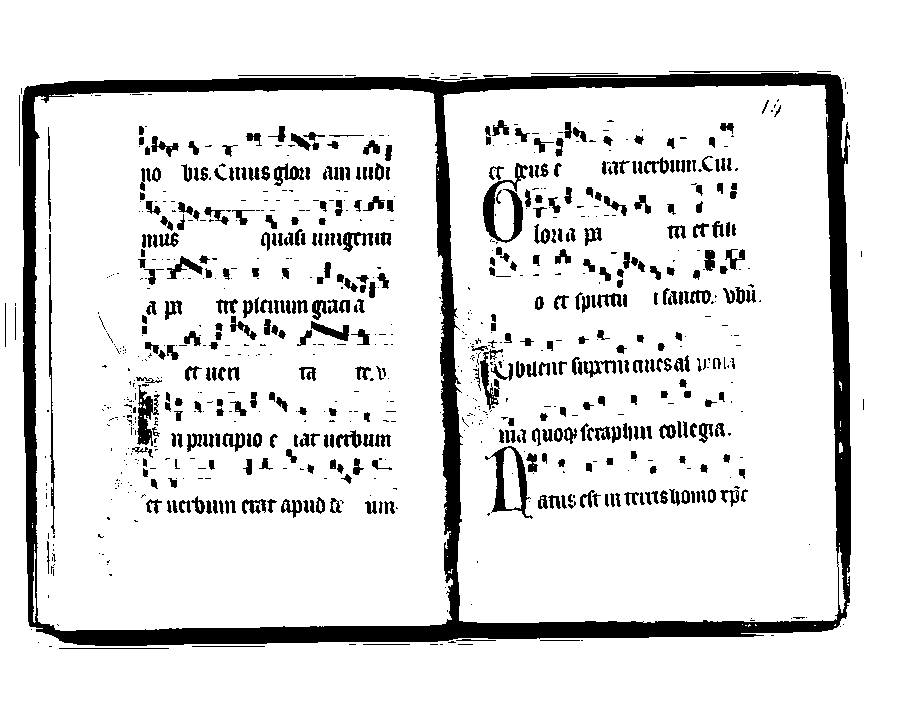 no bis. Cuius glori am uidi
mus quasi unigeniti
a pa tre plenum gracia
et ueri ta te. v.
In principio e rat uerbum
et uerbum erat apud de um
14
et deus e rat uerbum. Cui.
Gloria pa tri et fili
o et spiritu i sancto. vbũ.
Jbilent
ma quoqꝫ seraphin collegia.
Natus est in terris homo xp̃c